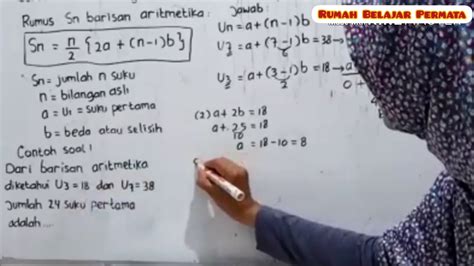 RUMAH BELAJAR PERMATA
Rumus Sn barisan aritmetika:
Sn = n/2 {2a + (n-1)b}
Sn = jumlah n suku
n = bilangan asli
a = U₁ = suku pertama
b = beda atau selisih
Contoh soal!
Dari barisan aritmetika
diketahui U₃ = 18 dan U₇ = 38
Jumlah 24 suku pertama
adalah...
Jawab:
Un = a + (n-1)b
U₇ = a + (7-1)b = 38 →
6
U₃ = a + (3-1)b = 18 → a
2
0 +
(2) a + 2b = 18
a + 2.5 = 18
10
a = 18 - 10 = 8